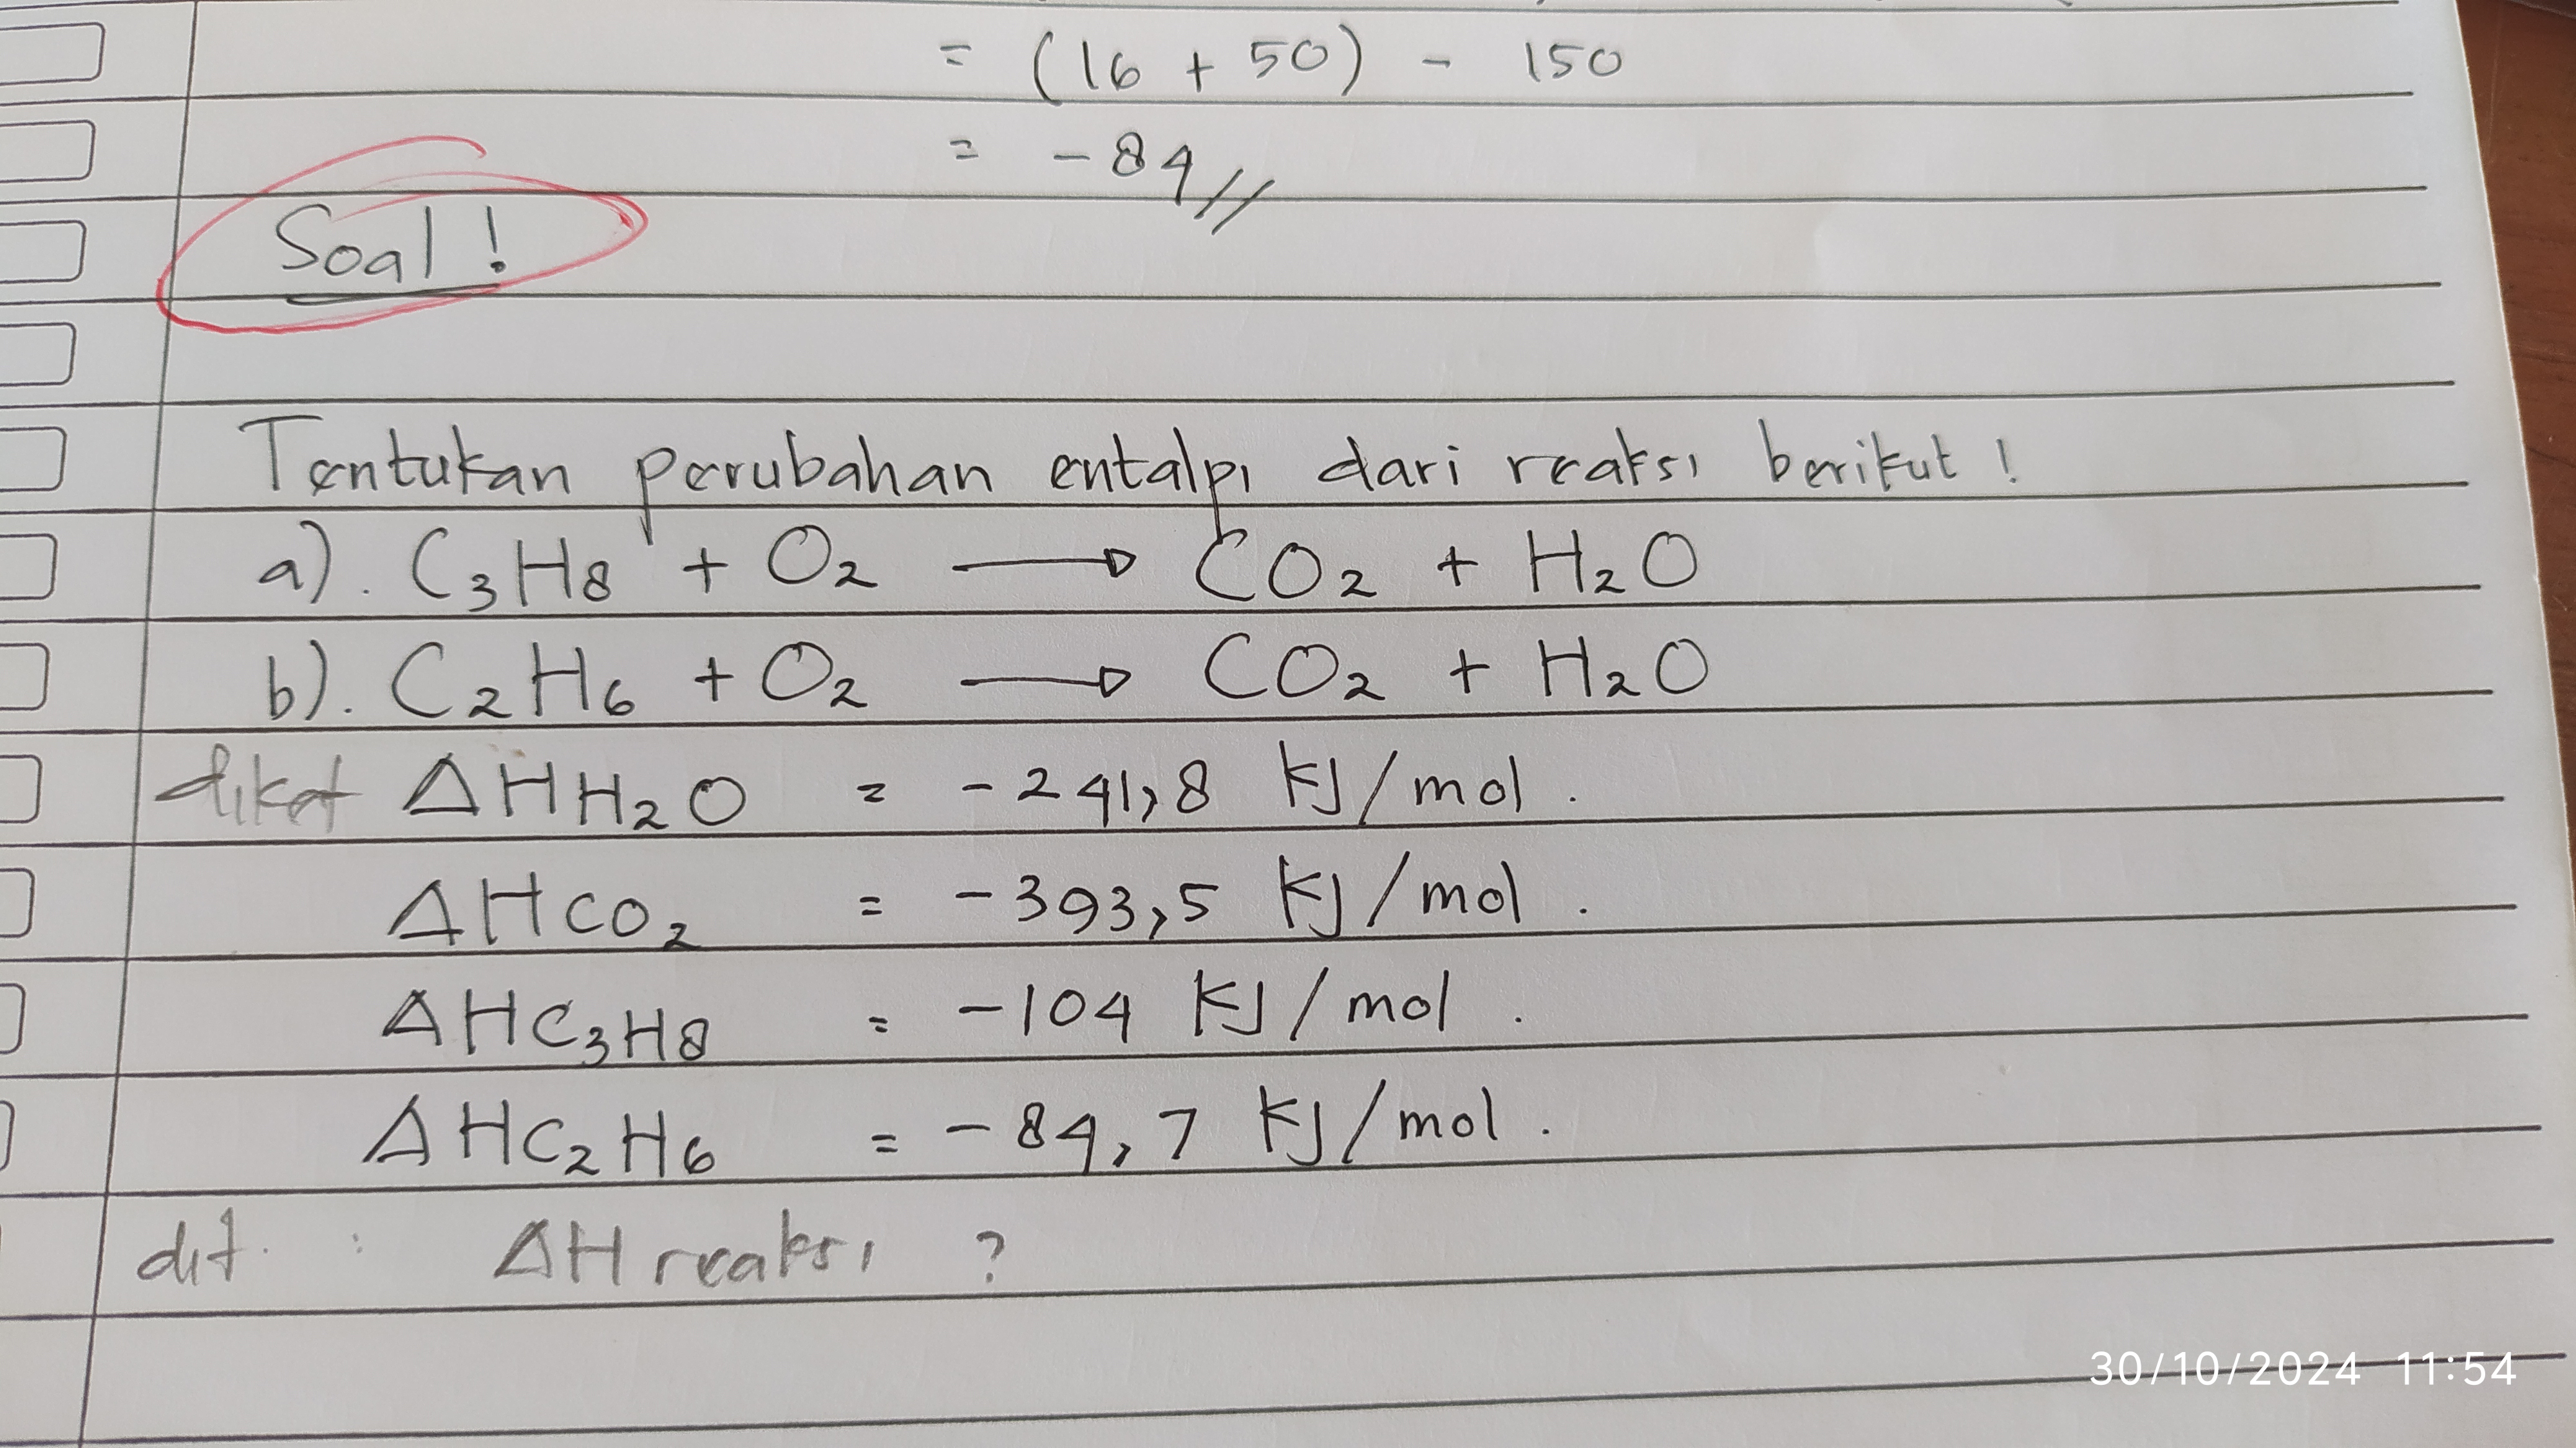 = (16 + 50) - 150
= -84//
Soal !
Tentukan perubahan entalpi dari reaksi berikut !
a). C₃H₈ + O₂ → CO₂ + H₂O
b). C₂H₆ + O₂ → CO₂ + H₂O
diket ΔH H₂O = -241,8 kJ/mol.
ΔH CO₂ = -393,5 kJ/mol.
ΔH C₃H₈ = -104 kJ/mol.
ΔH C₂H₆ = -84,7 kJ/mol.
dit. : ΔH reaksi ?
30/10/2024 11:54